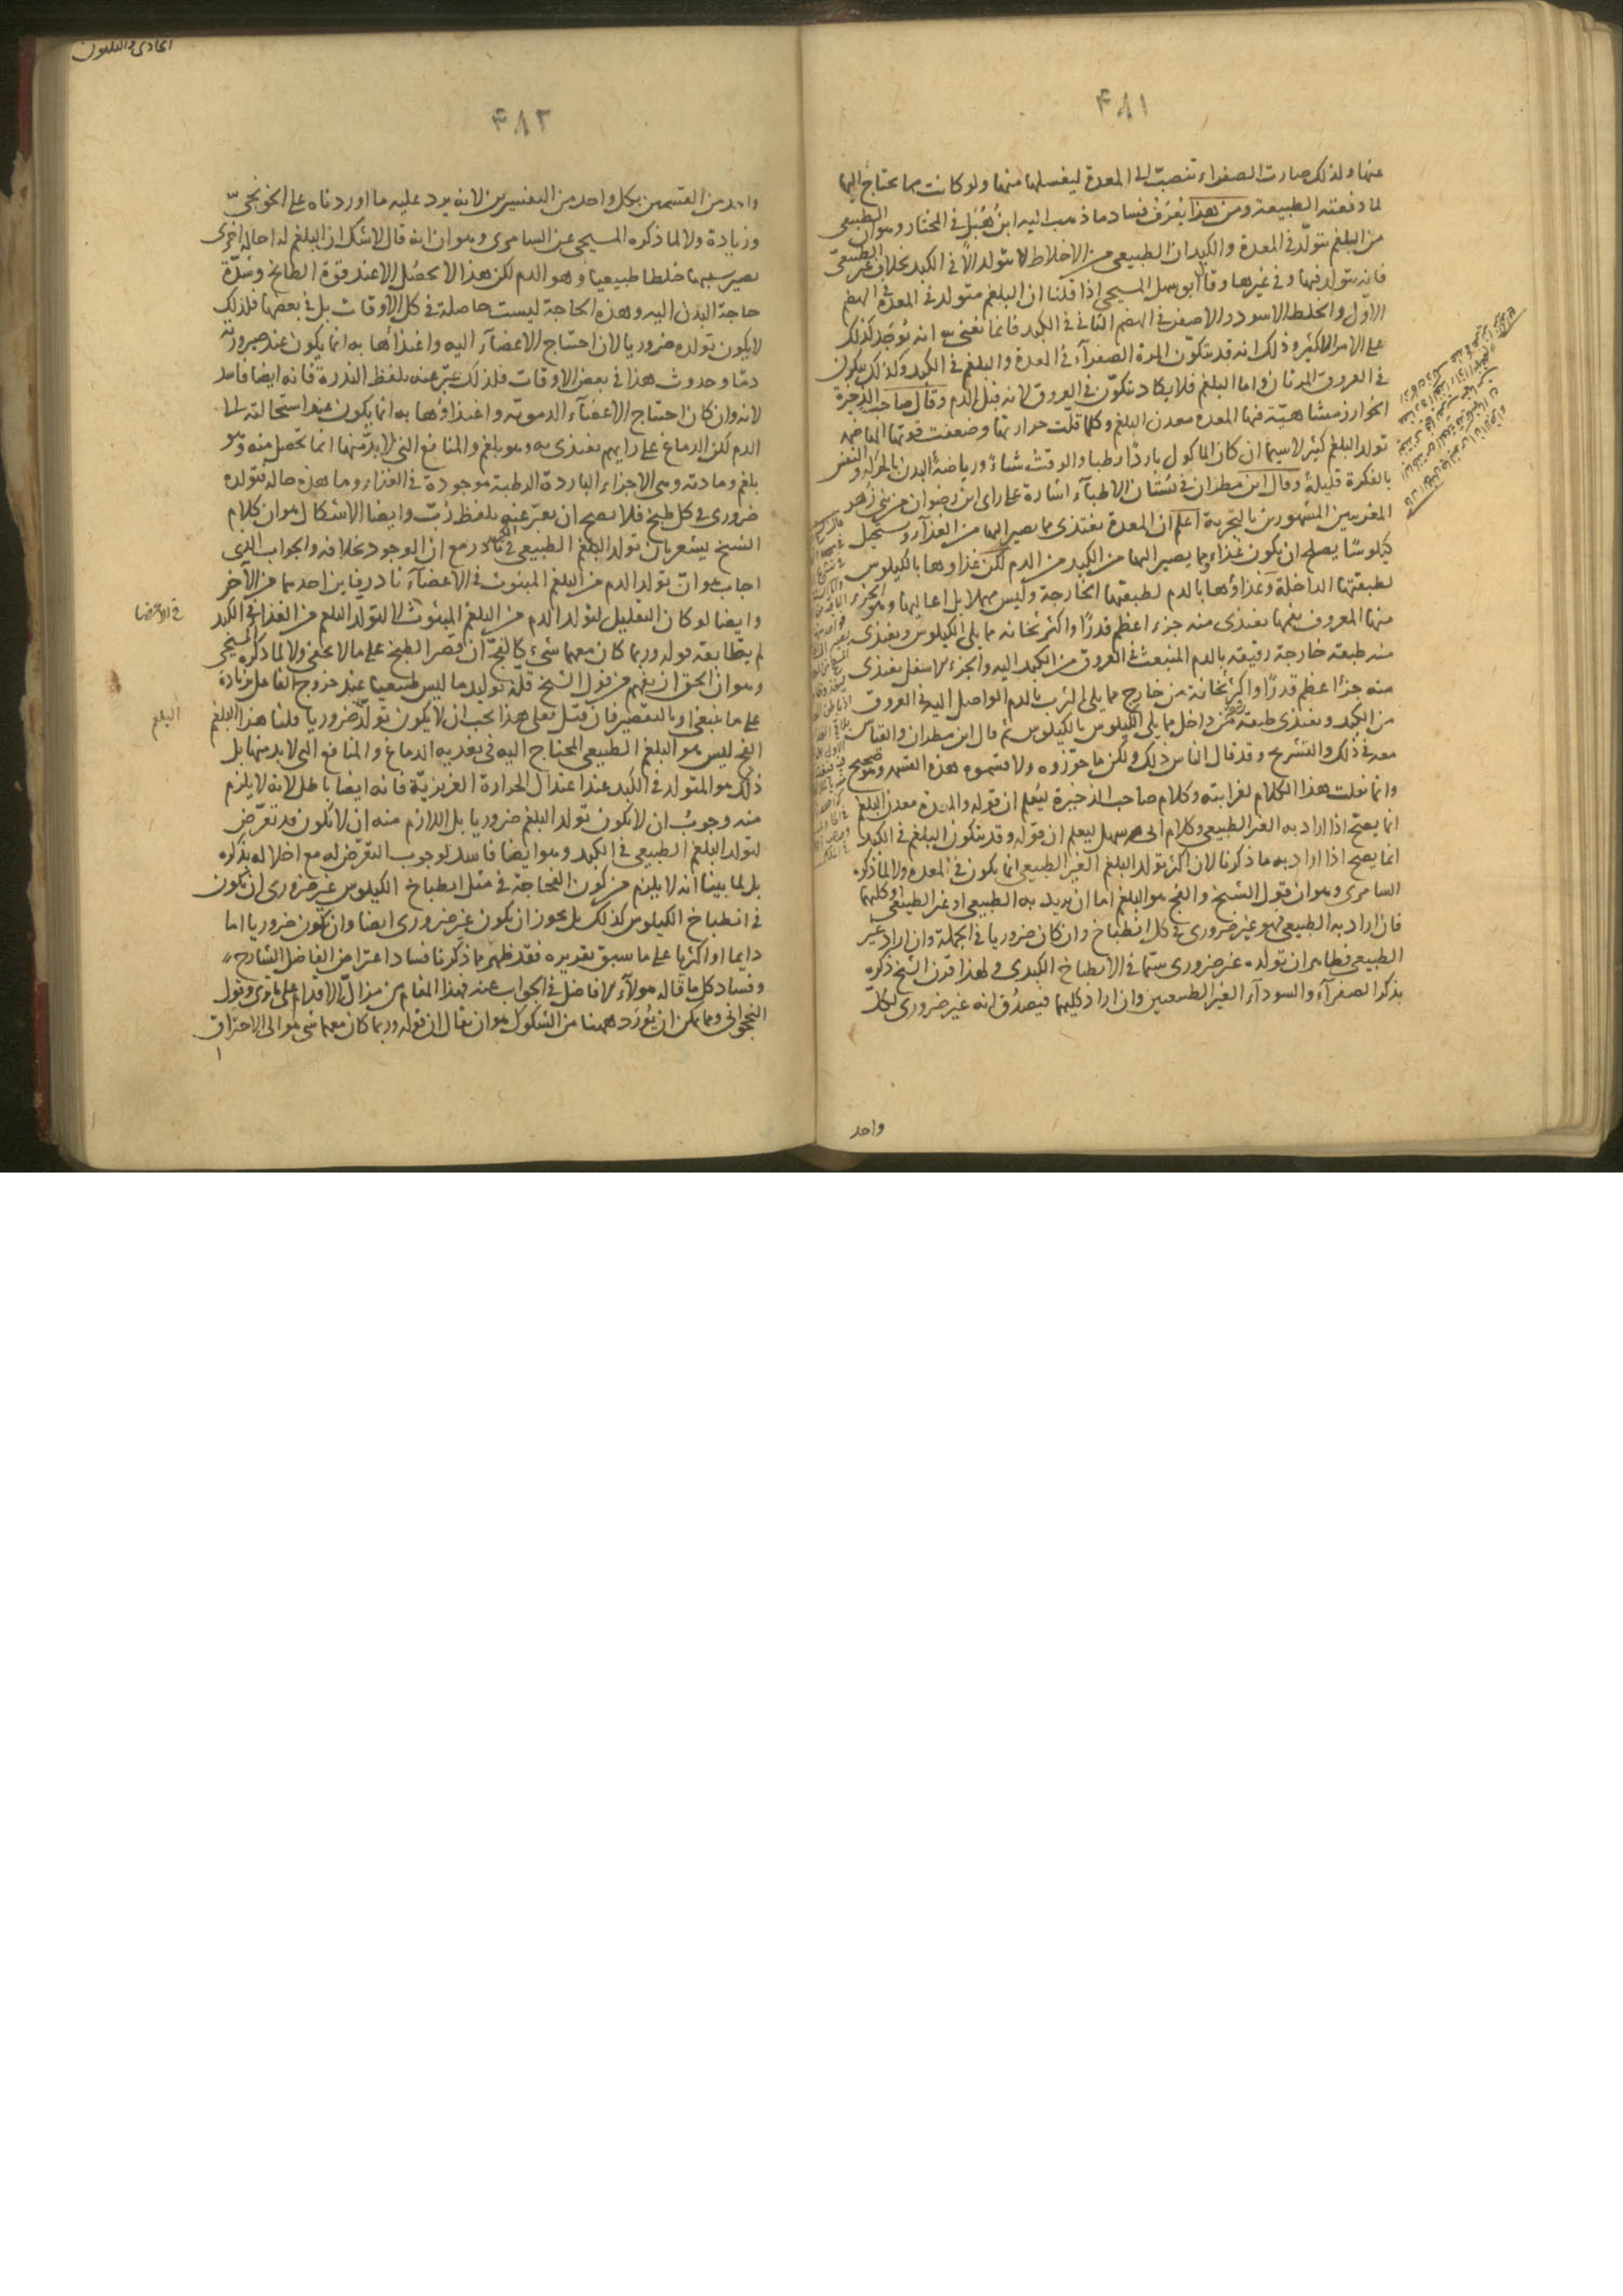 ٤٨١
عنها ولذلك صارت الصفراء تنصبّ الى المعدة ليغسلها منها ولو كانت مما يحتاج اليها
لما دفعته الطبيعة ومن هذا يُعرَف فساد ما ذهب اليه ابن هُبَل في المختار وهو ان الطبيعى
من البلغم يتولّد في المعدة والكبد ان الطبيعى من الاخلاط لا يتولد الّا في الكبد بخلاف غير الطبيعى
فانه يتولد فيها وفي غيرها وقال ابو سهل المسيحى اذا قلنا ان البلغم متولد في المعدة في الهضم
الاوّل والخلط الاسود والاصفر في الهضم الثانى في الكبد فانما نعنى به انه يوجد كذلك
على الامر الاكثر وذلك انه قد يتكوّن المرة الصفرآء في المعدة والبلغم في الكبد وكذلك يتكون
في العروق المرتان واما البلغم فلا يكاد يتكوّن في العروق لانه قبل الدم وقال صاحب الذخيرة
الخوارزمشاهيّة فيها المعدة معدن البلغم وكلما قلّت حرارتها وضعفت قوتها الهاضمة
تولد البلغم كثير لا سيما ان كان الماكول باردًا رطبا والوقت شتاءً ورياضة البدن بالحركة والنفس
بالفكرة قليلة وقال ابن مطران في بستان الاطبآء اشارة على راى ابن رضوان من بنى زهر
المغربيين المشهورين بالتجربة اعلم ان المعدة تغتذى مما يصير اليها من الغذآء ويستحيل
كيلوسًا يصلح ان يكون غذاء ومما يصير اليها من الكبد من الدم لكن غذاوها بالكيلوس
لطبقتها الداخلة وغذاؤها بالدم لطبقتها الخارجة وليس مهملا بل اعاليها وهو الجزء
منها المعروف بفمها تغتذى منه جزء اعظم قدرًا واكثر ثخانه مما يلى الكيلوس ويغتذى
منه طبقته خارجة رقيقة بالدم المنبعث في العروق من الكبد اليه والجزء الاسفل يغتذى
منه جزءًا اعظم قدرًا واكثر ثخانة من خارج مما يلى الثرب بالدم الواصل اليه في العروق
من الكبد ويغتذى طبقة من داخل مما يلى الكيلوس بالكيلوس ثم قال ابن مطران والقياس
معه في ذلك والتشريح وقد قال الناس ذلك ولكن ما حرّزوه ولا قسّموه هذه القسمة وهو صحيح
وانما نقلت هذا الكلام لغرابته وكلام صاحب الذخيرة ليُعلم ان قوله والمعدة معدن البلغم
انما يصحّ اذا اراد به الغير الطبيعى وكلام ابى سهل ليعلم ان قوله وقد يتكون البلغم في الكبد
انما يصح اذا اراد به ما ذكرنا لان اكثر تولد البلغم الغير الطبيعى انما يكون في المعدة ولا لما ذكره
السامرى وهو ان قول الشيخ والفج هو البلغم اما ان يريد به الطبيعى او غير الطبيعى او كليهما
فان اراد به الطبيعى فهو غير ضرورى في كل انطباخ وان كان ضروريا في الجملة وان اراد غير
الطبيعى فظاهر ان تولده غير ضرورى سيّما في الانطباخ الكبدى ولهذا قرن الشيخ ذكره
بذكر الصفرآء والسودآء الغير الطبيعيين وان اراد كليهما فيصدُق انه غير ضرورى لكلّ
واحد
الحادى والثلثون
٤٨٢
واحد من القسمين بكل واحد من التفسيرين لانه يرد عليه ما اوردناه على الخونجىّ
وزيادة ولا لما ذكره المسيحى عن السامرى وهو ان انه قال لا شك ان البلغم له احالة اخرى
يصير بسببها خلطا طبيعيا وهو الدم لكن هذا لا يحصُل الا عند قوة الطابخ وشدّة
حاجة البدن اليه وهذه الحاجة ليست حاصلة في كل الاوقات بل في بعضها فلذلك
لا يكون تولده ضروريا لان احتياج الاعضآء اليه واغتذآها به انما يكون عند صيرورته
دمًا وحدوث هذا في بعض الاوقات فلذلك عبّر عنه بلفظ الندرة فانه ايضا فاسد
لانه وان كان احتياج الاعضآء الدمويّة واغتذاؤها به انما يكون عند استحالته الى
الدم لكن الدماغ على رايهم يغتذى به وهو بلغم والمنافع التى لا بدّ منها انما تحصل منه وهو
بلغم ومادته وهى الاجزاء الباردة الرطبة موجودة في الغذاء وما هذه حاله فتولده
ضرورى في كل طبخ فلا يصح ان يعبّر عنه بلفظ رُبّ وايضا الاشكال هو ان كلام
الشيخ يشعر بان تولد البلغم الطبيعى في الكبد نادر مع ان الوجود بخلافه والجواب الذى
اجاب هو انّ تولد الدم من البلغم المبثوث في الاعضآء نادر فاين احدهما من الآخر
وايضا لو كان التقليل لتولد الدم من البلغم المبثوث لا لتولّد البلغم من الغذا في الكبد
في الاعضا
لم يطابقه قوله وربما كان معهما شىء كالفجّ ان قصر الطبخ على ما لا يخفى ولا لما ذكره المسيحى
وهو ان الحق ان يفهم من قول الشيخ قلّة توليد ما ليس طبيعيا عند خروج الفاعل بزيادة
على ما ينبغى او بالتقصير فان قيل فعلى هذا يجب ان لا يكون تولّد البلغم ضروريا قلنا هذا البلغم
البلغم
الفج ليس هو البلغم الطبيعى المحتاج اليه في تغذية الدماغ والمنافع التى لا بد منها بل
ذلك هو المتولد في الكبد عند اعتدال الحرارة الغريزيّة فانه ايضا باطل لانه لا يلزم
منه وجوبُ ان لا يكون تولد البلغم ضروريا بل اللازم منه ان لا يكون قد تعرّض
لتولد البلغم الطبيعى في الكبد وهو ايضا فاسد لوجوب التعرّض له مع اخلاله بذكره
بل لما بينا انه لا يلزم من كون الفجاجة في مثل انطباخ الكيلوس غير ضرورى ان يكون
في انطباخ الكيلوس كذلك بل يجوز ان يكون غير ضرورى ايضا وان يكون ضروريا اما
دايما او اكثريا على ما سبق تقريره فقد ظهر مما ذكرنا فساد اعتراض الفاضل الشارح
وفساد كل ما قاله هولآء الافاضل في الجواب عنه فهذا المقام من مزالّ الاقدام على ما ترى وقول
النخجوانى ومما يمكن ان يُورَد ههنا من الشكوك هو ان يقال ان قوله وربما كان معهما شى هو الى الاحتراق